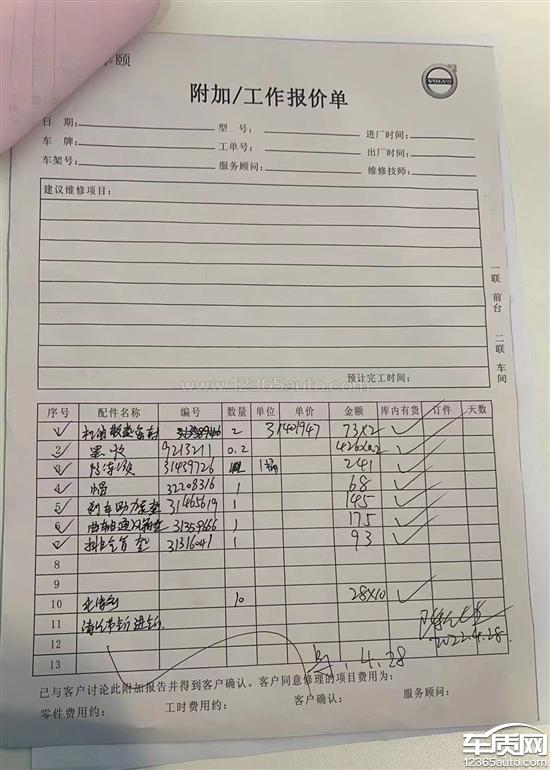 颐
VOLVO
附加/工作报价单
日 期： 型 号： 进厂时间：
车 牌： 工单号： 出厂时间：
车架号： 服务顾问： 维修技师：
建议维修项目：
一联 前台 二联 车间
www.12365auto.com
预计完工时间：
序号 配件名称 编号 数量 单位 单价 金额 库内有货 订件 天数
1 2 31401947 73X2 ✓
2 黑胶 9213211 0.2 426X0.2 ✓
3 防冻液 31439726 1桶 241 ✓
4 帽 32208316 1 68 ✓
5 刹车助力泵垫 31465619 1 145 ✓
6 曲轴通风箱垫 31359666 1 175 ✓
7 排气管垫 31316041 1 93 ✓
8
9
10 10 28X10 ✓
11
2022.4.28.
12
13 4.28
已与客户讨论此附加报告并得到客户确认。客户同意修理的项目费用为：
零件费用约： 工时费用约： 客户确认： 服务顾问：
车质网
12365auto.com